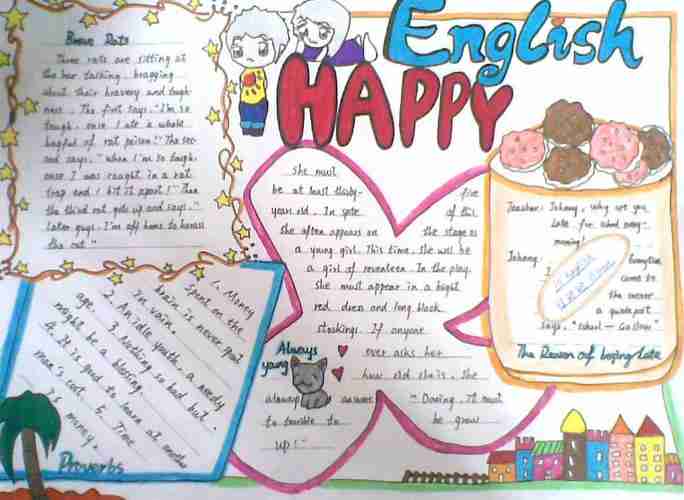 English
HAPPY
Brave Rats
Three rats are sitting at
the bar talking bragging
about their bravery and tough-
ness. The first says. "I'm so
tough, once I ate a whole
bagful of rat poison!" The sec-
ond says. "when I'm so tough,
once I was caught in a rat
trap and I bit it apart!" Then
the third rat gets up and says. "
Later guys. I'm off home to harass
the cat."
She must
be at least thirty- five
years old. In spite of this
she often appears on the stage as
a young girl. This time, she will be
a girl of seventeen. In the play,
she must appear in a bright
red dress and long black
stockings. If anyone
ever asks her
how old she is, she
always answers "Darling, it must
be terrible to be grown
up!"
Always
young
Teacher: Johnny, why are you
late for school every
morning?
Johnny: Everytime
I came to
the corner
a guidepost
says, "School — Go Slow"
The Reason of being Late
1. Money spent on the
brain is never spent
in vain.
2. An idle youth, a needy
age. 3. Nothing so bad but
might be a blessing.
4. It is good to learn at another
man's cost. 5. Time
is money.
Proverbs